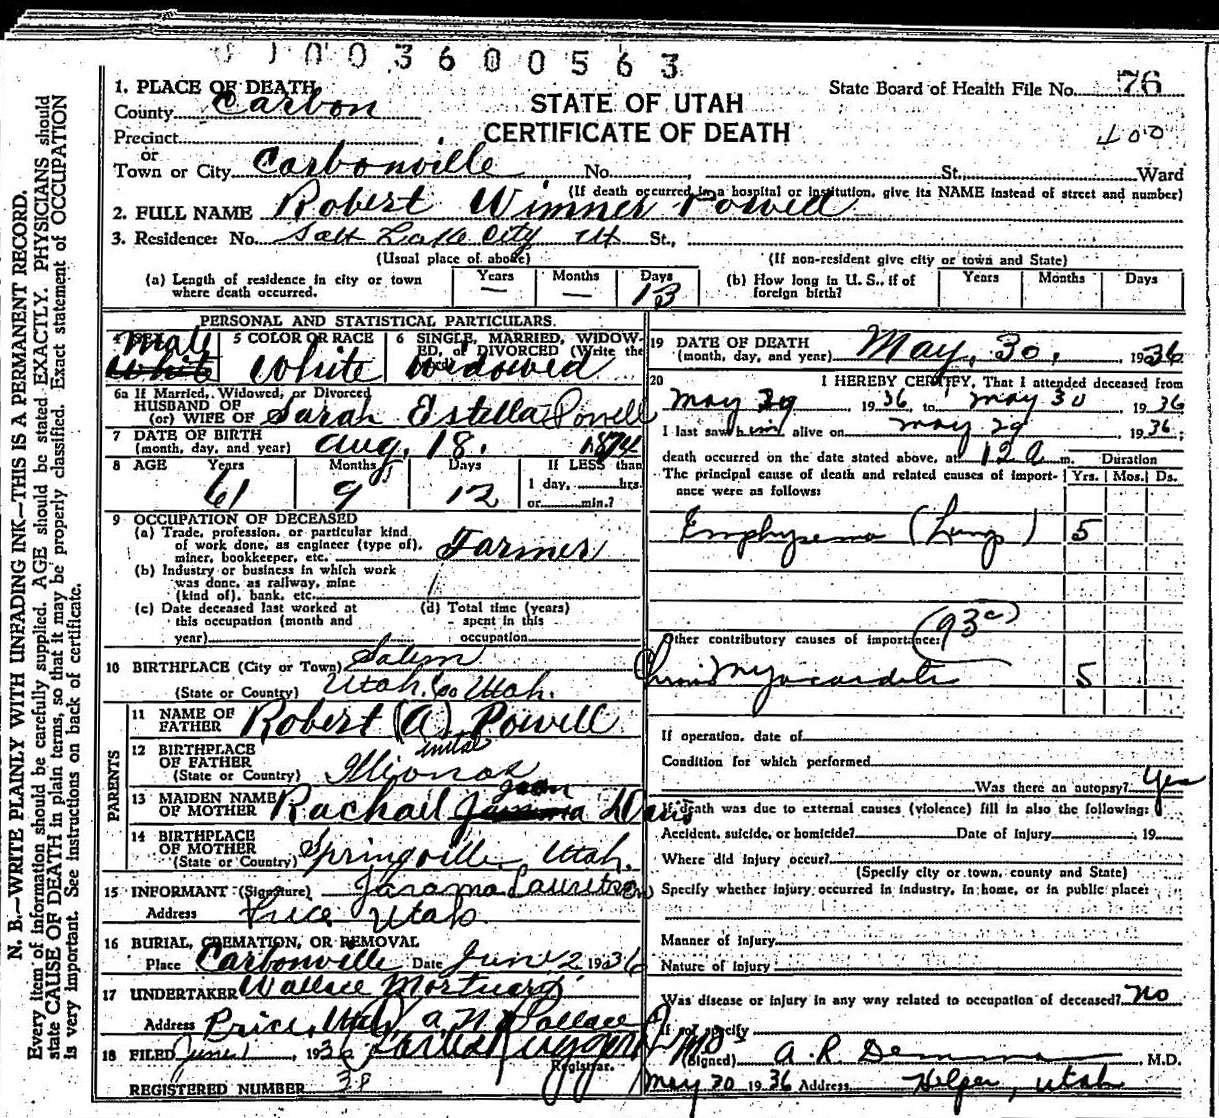 0100360 0563
1. PLACE OF DEATH
County Carbon
STATE OF UTAH
CERTIFICATE OF DEATH
State Board of Health File No. 76
400
Precinct
or
Town or City Carbonville No. , St. Ward
(If death occurred in a hospital or institution, give its NAME instead of street and number)
2. FULL NAME Robert Wimner Powell
3. Residence: No. Salt Lake City Ut St.,
(Usual place of above) (If non-resident give city or town and State)
(a) Length of residence in city or town where death occurred. Years — Months — Days 13
(b) How long in U. S., if of foreign birth? Years Months Days
PERSONAL AND STATISTICAL PARTICULARS.
Male White
5 COLOR OR RACE White
6 SINGLE, MARRIED, WIDOWED, or DIVORCED (Write the Widowed
6a If Married, Widowed, or Divorced
HUSBAND OF
(or) WIFE OF Sarah Estella Powell
7 DATE OF BIRTH
(month, day, and year) Aug. 18. 1874
8 AGE Years 61 Months 9 Days 12 If LESS than 1 day, hrs. or min.?
9 OCCUPATION OF DECEASED
(a) Trade, profession, or particular kind of work done, as engineer (type of), miner, bookkeeper, etc. Farmer
(b) Industry or business in which work was done, as railway, mine (kind of), bank, etc.
(c) Date deceased last worked at this occupation (month and year)
(d) Total time (years) spent in this occupation
10 BIRTHPLACE (City or Town) Salem
(State or Country) Utah Co Utah.
PARENTS
11 NAME OF FATHER Robert (A) Powell
initial
12 BIRTHPLACE OF FATHER
(State or Country) Illionos
13 MAIDEN NAME OF MOTHER Rachail Jean Davis
14 BIRTHPLACE OF MOTHER
(State or Country) Springville, Utah.
15 INFORMANT (Signature) Jarama Lauritzen
Address Price Utah
16 BURIAL, CREMATION, OR REMOVAL
Place Carbonville Date June 2 1936
17 UNDERTAKER Wallace Mortuary
Address Price, Utah A. N. Wallace
18 FILED June 1, 1936
Registrar.
REGISTERED NUMBER 38
19 DATE OF DEATH
(month, day, and year) May, 30, 1936
20 I HEREBY CERTIFY, That I attended deceased from
May 29 1936, to May 30 1936
I last saw him alive on May 29 1936;
death occurred on the date stated above, at 12 a m. Duration
The principal cause of death and related causes of importance were as follows: Yrs. Mos. Ds.
Emphysema (Lungs) 5
(93c)
Other contributory causes of importance:
Chronic Myocarditis 5
If operation, date of
Condition for which performed
Was there an autopsy? Yes
If death was due to external causes (violence) fill in also the following:
Accident, suicide, or homicide? Date of Injury , 19
Where did injury occur?
(Specify city or town, county and State)
Specify whether injury occurred in industry, in home, or in public place:
Manner of Injury
Nature of Injury
Was disease or injury in any way related to occupation of deceased? No
If so, specify
(Signed) A. R. Demman M.D.
May 30 1936 Address Helper, Utah
N. B.—WRITE PLAINLY WITH UNFADING INK—THIS IS A PERMANENT RECORD.
Every item of information should be carefully supplied. AGE should be stated EXACTLY. PHYSICIANS should
state CAUSE OF DEATH in plain terms, so that it may be properly classified. Exact statement of OCCUPATION
is very important. See instructions on back of certificate.